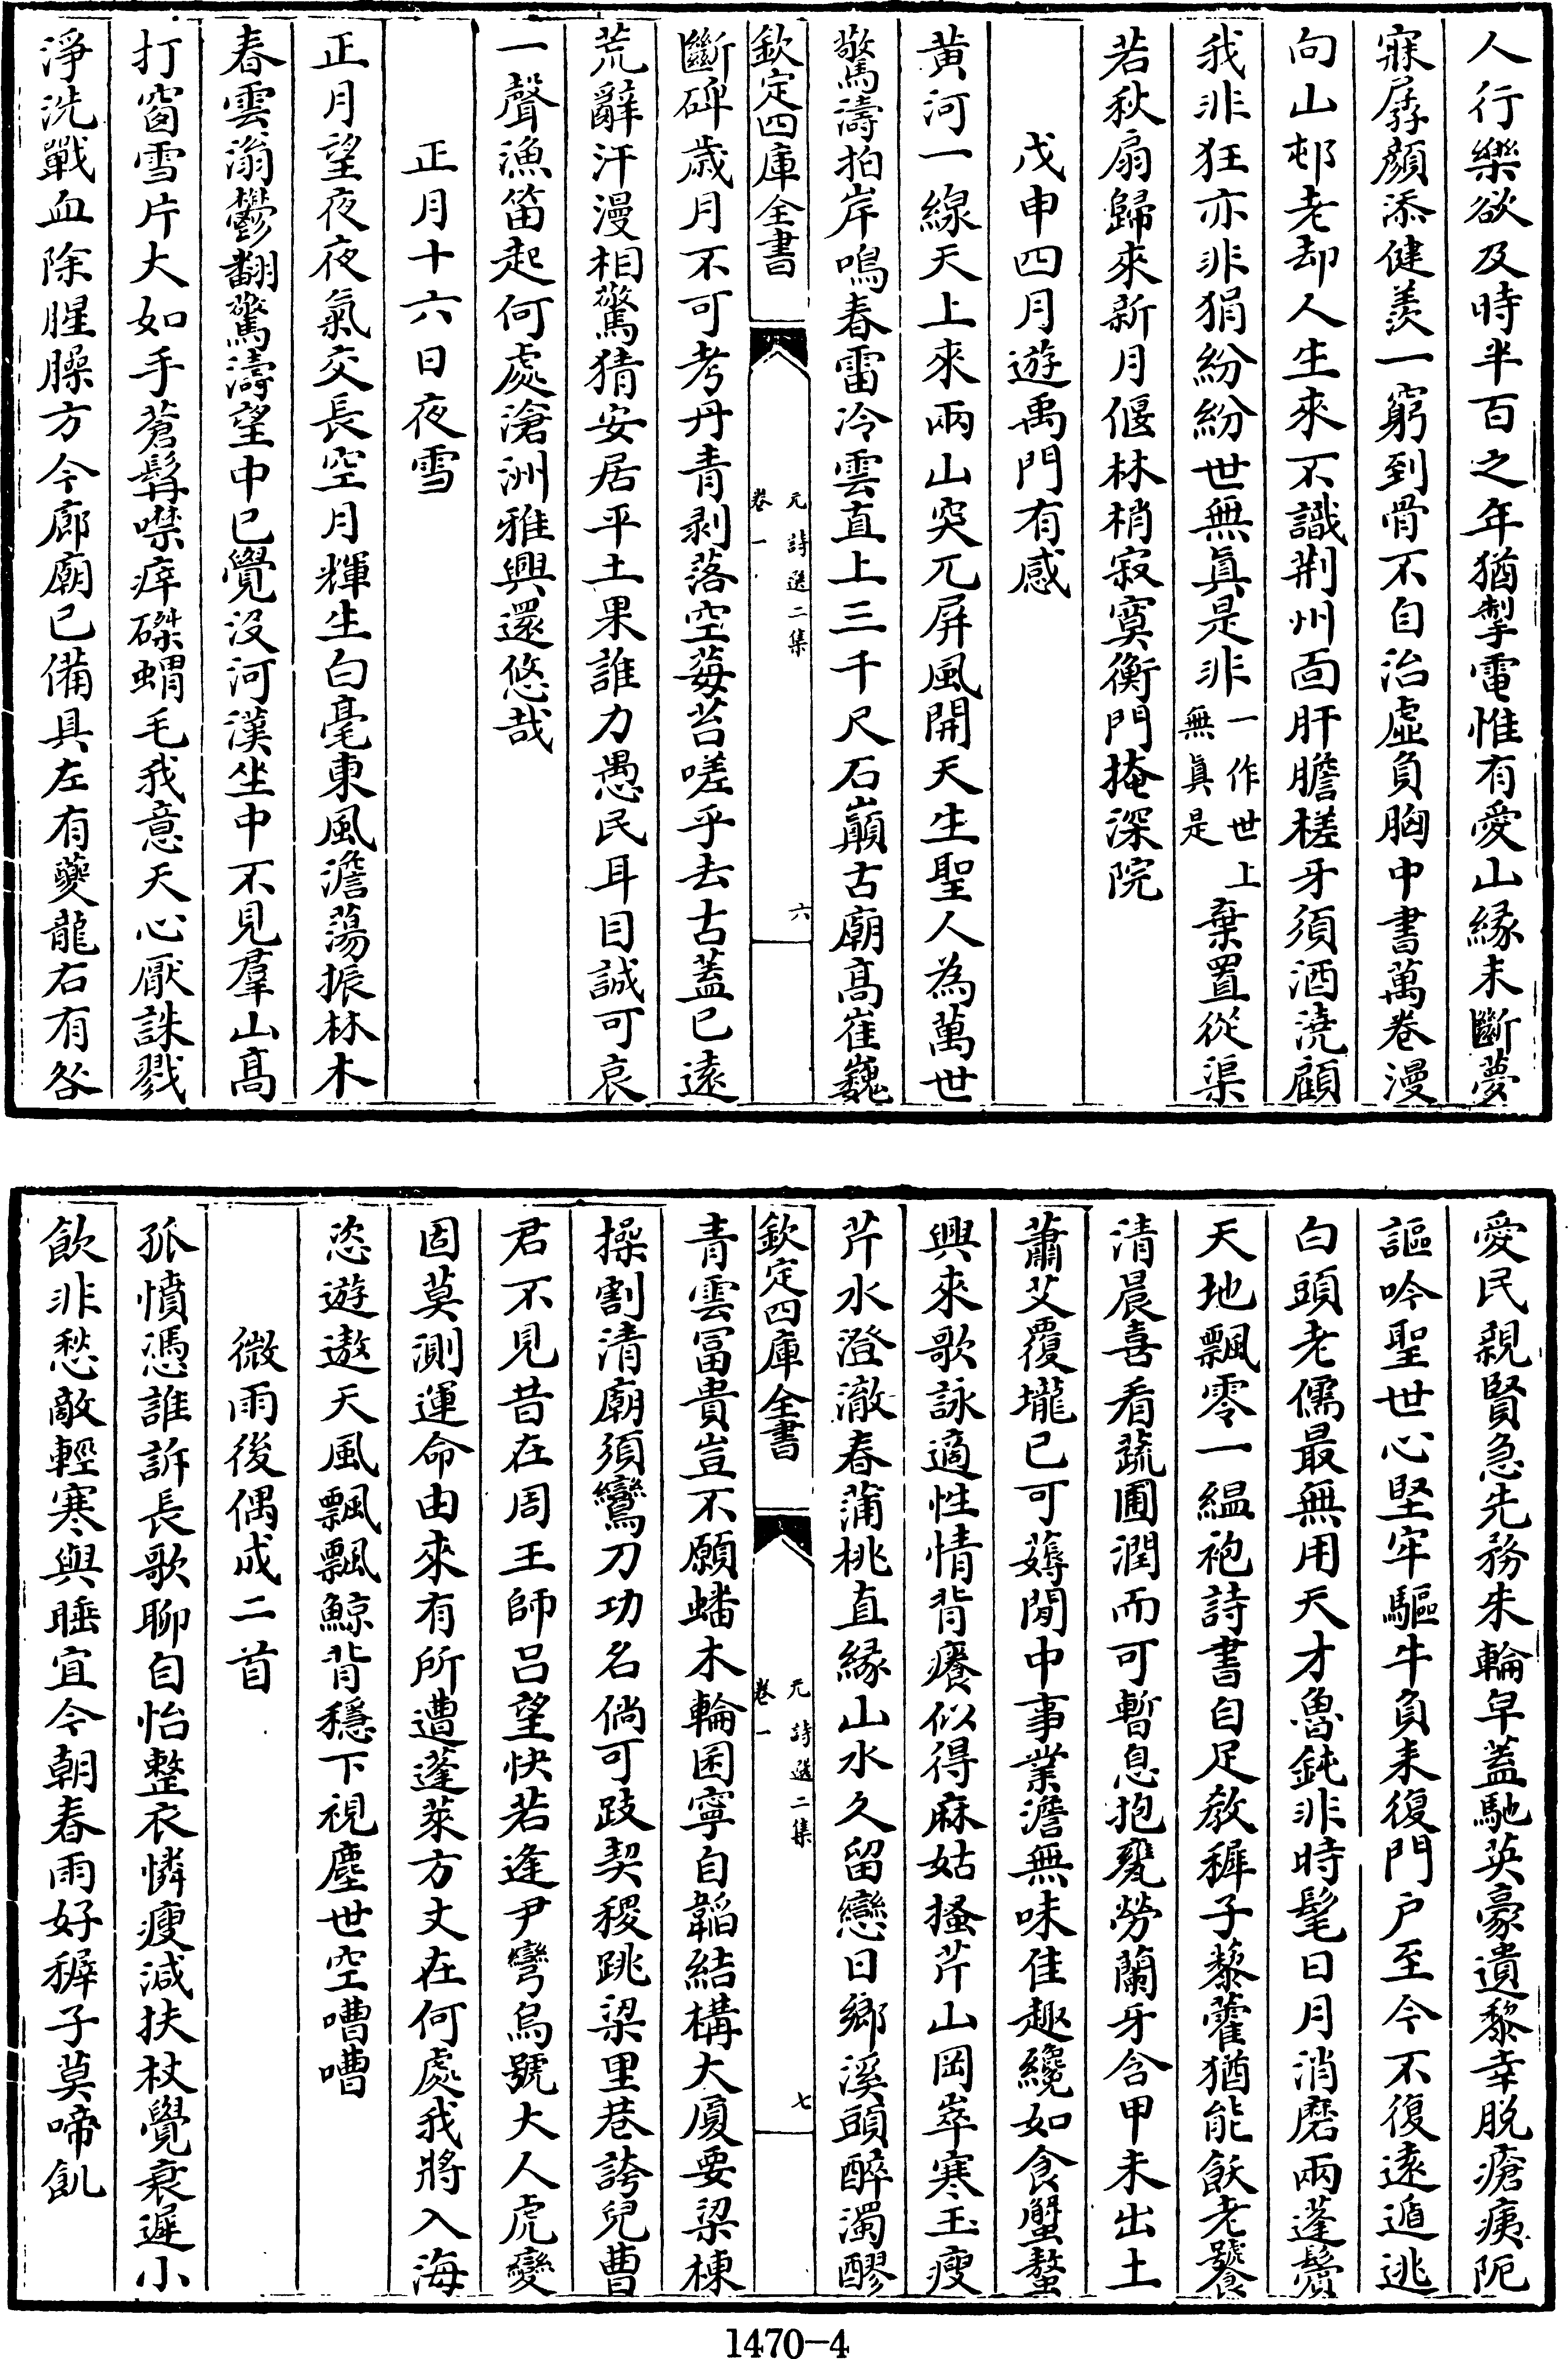 人行樂欲及時半百之年猶掣電惟有愛山緣未斷夢
寐孱顏添健羨一窮到骨不自治虛負胸中書萬卷漫
向山邨老却人生來不識荆州面肝膽槎牙須酒澆顧
我非狂亦非狷紛紛世無眞是非一作世上無眞是棄置從渠
若秋扇歸來新月偃林梢寂寞衡門掩深院
戊申四月遊禹門有感
黄河一線天上來兩山突兀屏風開天生聖人為萬世
驚濤拍岸鳴春雷冷雲直上三千尺石巔古廟髙崔巍
欽定四庫全書
元詩選二集
卷一
六
斷碑歲月不可考丹青剥落空莓苔嗟乎去古蓋已遠
荒辭汗漫相驚猜安居平土果誰力愚民耳目誠可哀
一聲漁笛起何處滄洲雅興還悠哉
正月十六日夜雪
正月望夜夜氣交長空月輝生白毫東風澹蕩振林木
春雲滃鬱翻驚濤望中已覺没河漢坐中不見羣山髙
打窗雪片大如手蒼髯噤瘁磔蝟毛我意天心厭誅戮
淨洗戰血除腥臊方今廊廟已備具左有夔龍右有咎
愛民親賢急先務朱輪皁蓋馳英豪遺黎幸脱瘡痍阨
謳吟聖世心堅牢驅牛負耒復門户至今不復遠遁逃
白頭老儒最無用天才魯鈍非時髦日月消磨兩蓬鬢
天地飄零一緼袍詩書自足教穉子藜藿猶能飫老饕
清晨喜看蔬圃潤而可暫息抱甕勞蘭牙含甲未出土
蕭艾覆壠已可薅閒中事業澹無味佳趣纔如食蟹螯
興來歌詠適性情背癢似得麻姑搔芹山岡崒寒玉瘦
芹水澄澈春蒲桃直緣山水久留戀日鄉溪頭醉濁醪
欽定四庫全書
元詩選二集
卷一
七
青雲冨貴豈不願蟠木輪囷寧自韜結構大厦要梁棟
操割清廟須鸞刀功名倘可跂契稷跳梁里巷誇兒曹
君不見昔在周王師吕望快若逢尹彎烏號大人虎變
固莫測運命由來有所遭蓬萊方丈在何處我將入海
恣遊遨天風飄飄鯨背穩下視塵世空嘈嘈
微雨後偶成二首
孤憤憑誰訴長歌聊自怡整衣憐瘦減扶杖覺衰遲小
飲非愁敵輕寒與睡宜今朝春雨好穉子莫啼飢
1470-4